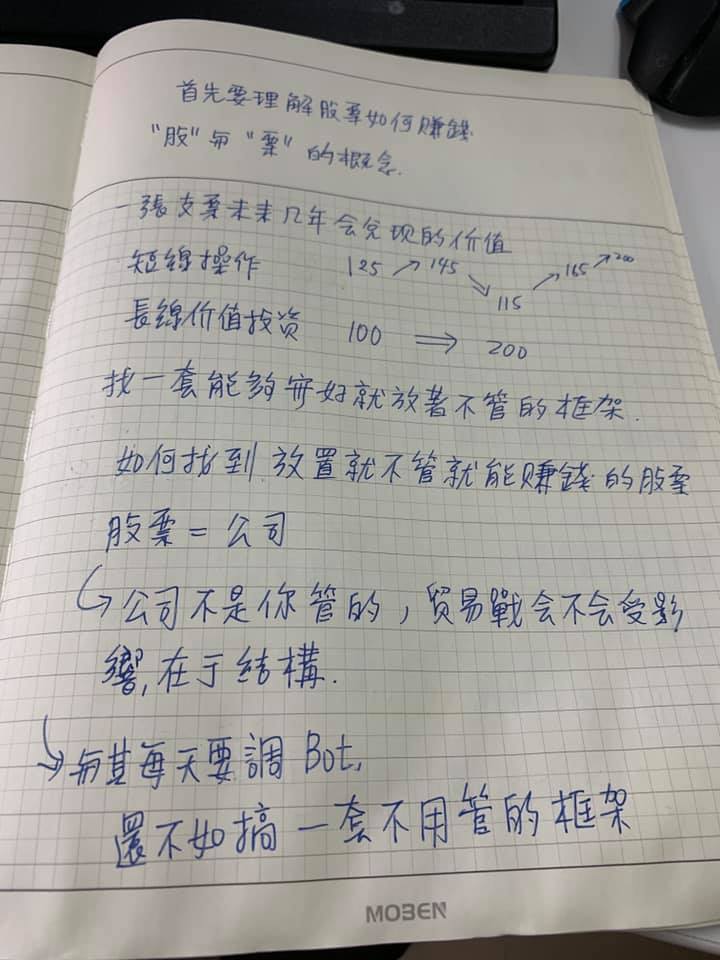 首先要理解股票如何賺錢
"股"与"票"的概念.
一張支票未来几年会兑现的价值
短線操作 125 → 145 → 115 → 165 → 200
長線价值投资 100 ⇒ 200
找一套能夠弄好就放著不管的框架.
如何找到放置就不管就能賺錢的股票
股票 = 公司
↳ 公司不是你管的, 貿易戰会不会受影
響, 在于結構.
↳ 与其每天要調 Bot,
還不如搞一套不用管的框架
MOBEN